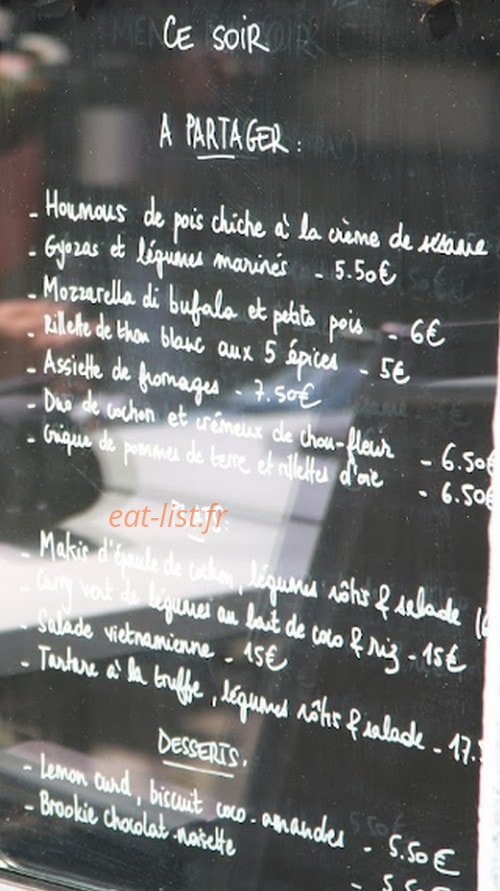 CE SOIR
A PARTAGER :
- Houmous de pois chiche à la crème de sésame
- Gyozas et légumes marinés - 5.50€
- Mozzarella di bufala et petits pois - 6€
- Rillette de thon blanc aux 5 épices - 5€
- Assiette de fromages - 7.50€
- Duo de cochon et crémeux de chou-fleur - 6.50€
- Crique de pommes de terre et rillettes d'oie - 6.50€
PLATS:
eat-list.fr
- Makis d'épaule de cochon, légumes rôtis & salade
- Curry vert de légumes au lait de coco & riz - 15€
- Salade vietnamienne - 15€
- Tartare à la truffe, légumes rôtis & salade - 17.5
DESSERTS.
- Lemon curd, biscuit coco-amandes - 5.50€
- Brookie chocolat-noisette - 5.5